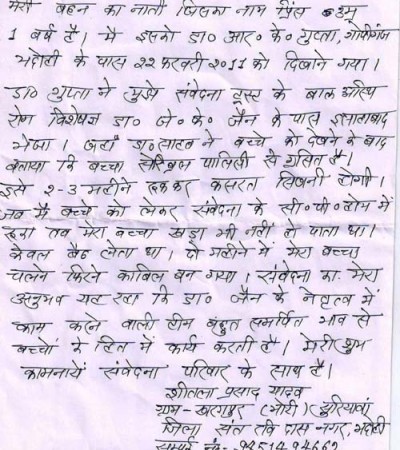 मेरी बहन का नाती जिसका नाम प्रिंस उम्र
1 वर्ष है। मै इसको डा० आर० के० गुप्ता, गोपीगंज
भदोही के पास 22 फरवरी 2011 को दिखाने गया।
डा० गुप्ता ने मुझे संवेदना ट्रस्ट के बाल अस्थि
रोग विशेषज्ञ डा० जे० के० जैन के पास इलाहाबाद
भेजा। जहाँ डा० साहब ने बच्चे को देखने के बाद
बताया कि बच्चा सेरिब्रल पालिसी से ग्रसित है।
इसे 2-3 महीने रुककर कसरत सिखनी होगी।
जब मै बच्चे को लेकर संवेदना के सी० पी० होम में
रहा तब मेरा बच्चा खड़ा भी नहीं हो पाता था।
केवल बैठ लेता था। दो महीने में मेरा बच्चा
चलने फिरने काबिल बन गया। संवेदना का मेरा
अनुभव यह रहा कि डा० जैन के नेतृत्व में
काम करने वाली टीम बहुत समर्पित भाव से
बच्चों के हित में कार्य करती है। मेरी शुभ
कामनायें संवेदना परिवार के साथ है।
शीतला प्रसाद यादव
ग्राम - खरगपुर (मोरी) सुरियावां
जिला संत रवि दास नगर, भदोही
सम्पर्क नं०- 9451494662